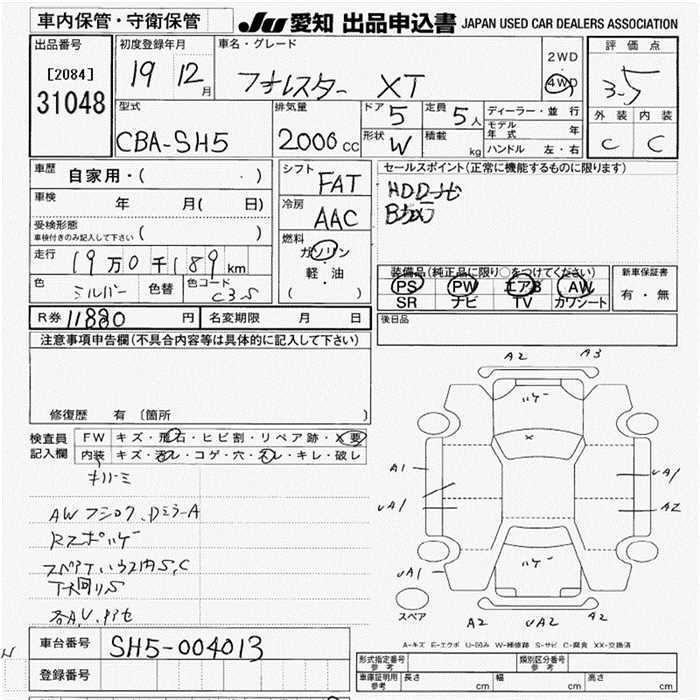 車内保管・守衛保管
JU 愛知 出品申込書 JAPAN USED CAR DEALERS ASSOCIATION
出品番号
[2084]
31048
初度登録年月
19 12月
車名・グレード
フォレスター XT
2WD
・
4WD
評価点
3.5
外装 内装
C C
型式
CBA-SH5
排気量
2000cc
ドア 5
形状 W
定員 5人
積載 kg
ディーラー・並行
モデル年式 年
ハンドル 左・右
車歴 自家用・( )
車検 年 月( 日)
受検形態
車検付きのみ記入して下さい ( )
走行 19万0千189km
色 シルバー 色替 色コード C3S
シフト FAT
冷房 AAC
燃料
ガソリン
軽・油
( )
セールスポイント(正常に機能するものに限ります)
HDDナビ
Bカメラ
装備品(純正品に限り○をつけてください)
PS PW エアB AW
SR ナビ TV カワシート
新車保証書
有・無
後日品
R券 11880円 名変期限 月 日
注意事項申告欄(不具合内容等は具体的に記入して下さい)
修復歴 有 〔箇所 〕
検査員記入欄
FW キズ・飛石・ヒビ割・リペア跡・X要
内装 キズ・汚レ・コゲ・穴・スレ・キレ・破レ
AWフショク、DミラーA
スペアハウス内S,C
下回りS
A2 A3
ハゲ
X
A1
UA1
UA1
A2
UA1
ハゲ
スペア
A2 UA2 A2
A-キズ E-エクボ U-凹み W-補修跡 S-サビ C-腐食 XX-交換済
車台番号 SH5-004013
登録番号
形式指定番号 参考
類別区分番号 参考
車庫証明用 参考 長さ cm 幅 cm 高さ cm